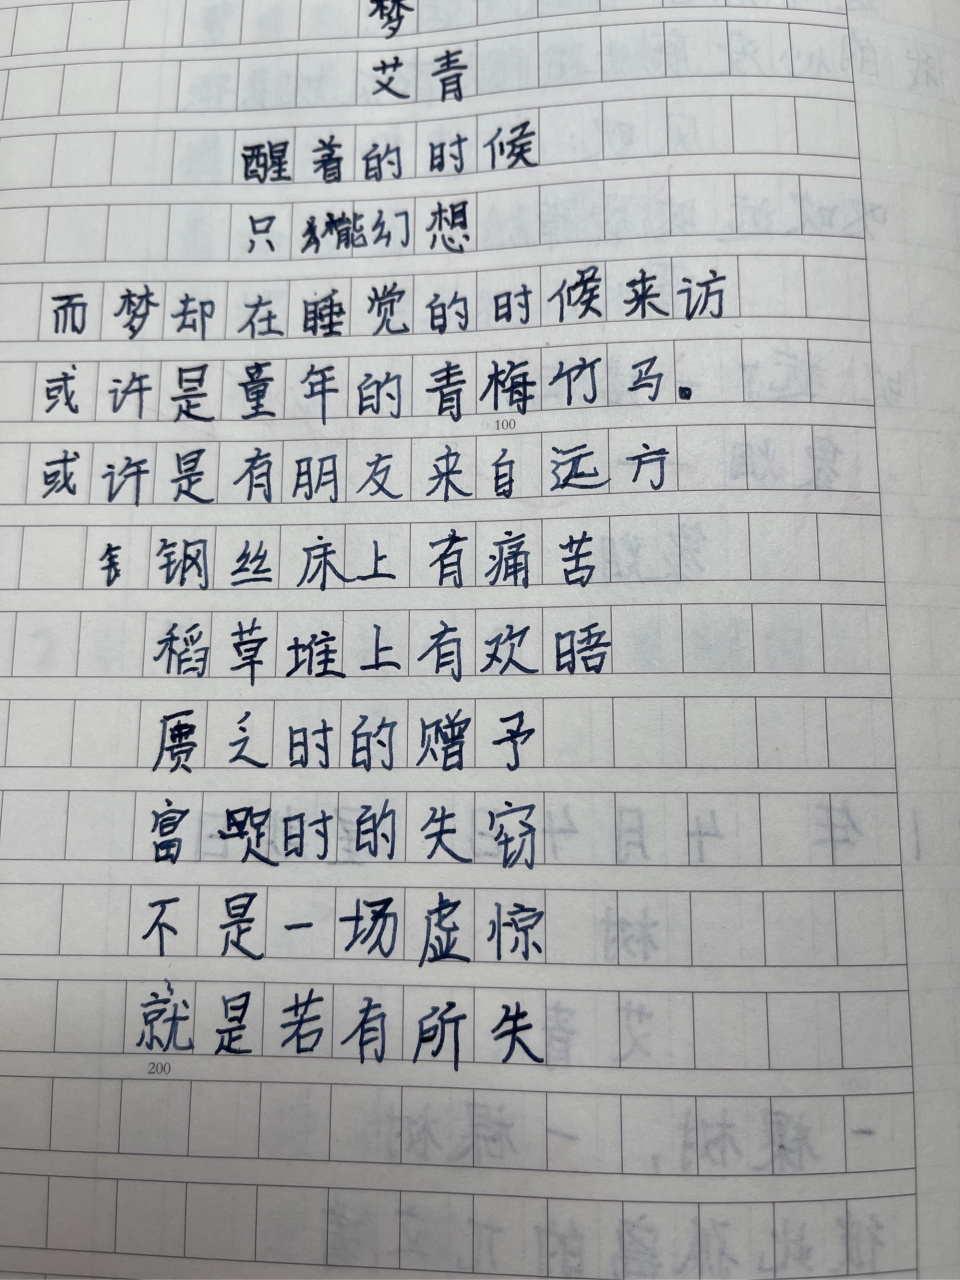 梦
艾青
醒着的时候
只能幻想
而梦却在睡觉的时候来访
或许是童年的青梅竹马。
100
或许是有朋友来自远方
钢丝床上有痛苦
稻草堆上有欢晤
匮乏时的赠予
富足时的失窃
不是一场虚惊
就是若有所失
200